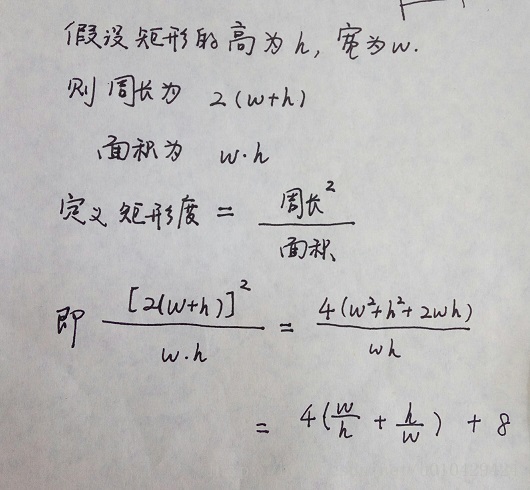 假设矩形的高为h，宽为w.
则周长为 2(w+h)
面积为 w·h
定义矩形度 = 周长² / 面积
即 [2(w+h)]² / w·h = 4(w²+h²+2wh) / wh
= 4(w/h + h/w) + 8